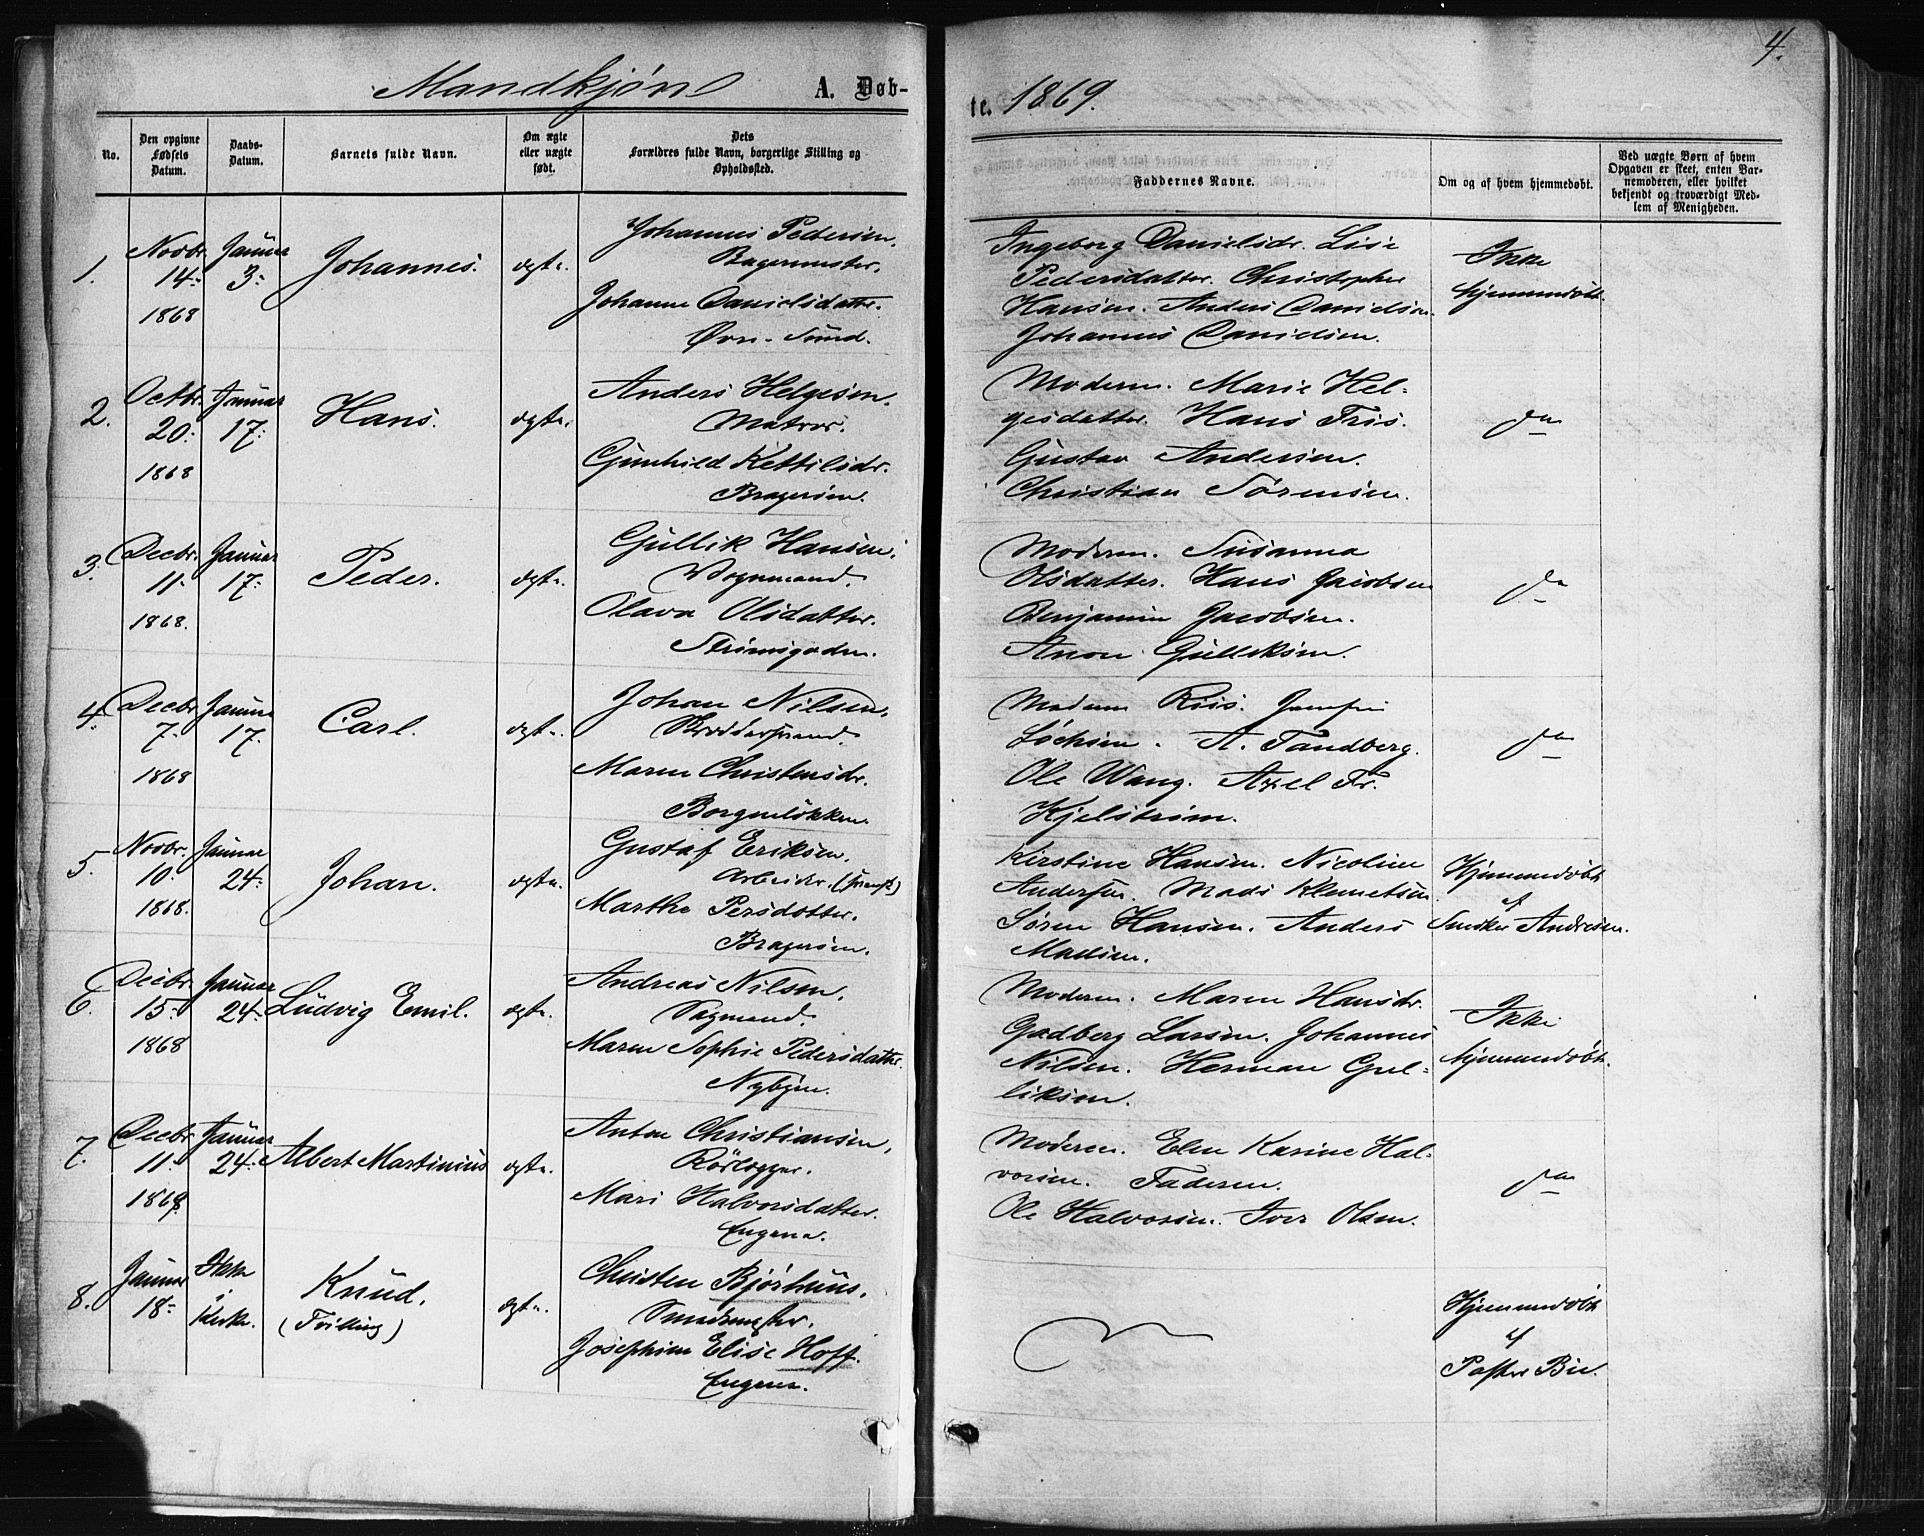 4.
Mandkjøn A. Døb-
te. 1869.
No.
Den opgivne
Fødsels
Datum.
Daabs-
Datum.
Barnets fulde Navn.
Om ægte
eller uægte
født.
Dets
Forældres fulde Navn, borgerlige Stilling og
Opholdssted.
Faddernes Navne.
Om og af hvem hjemmedøbt.
Ved uægte Børn af hvem
Opgaven er skeet, enten Bar-
nemoderen, eller hvilket
bekjendt og troværdigt Med-
lem af Menigheden.
1.
Novbr.
14:
1868
Januar
3:
Johannes.
ægte.
Johannes Pedersen.
Bagermester.
Johanne Danielsdatter.
Øvre-Sund.
Ingeborg Danielsdr. Lise
Pedersdatter. Christopher
Hansen. Anders Danielsen.
Johannes Danielsen.
Ikke
hjemmedøbt.
2.
Octbr.
20:
1868
Januar
17:
Hans.
ægte.
Anders Helgesen.
Matros.
Gunhild Kettilsdr.
Bragerøen.
Moderen. Marie Hel-
gesdatter. Hans Friis.
Gustav Andersen.
Christian Sørensen.
do
3.
Decbr.
11.
1868.
Januar
17:
Peder.
ægte.
Gullik Hansen.
Vognmand.
Olava Olsdatter.
Strømsgaden.
Moderen. Susanna
Olsdatter. Hans Jacobsen
Benjamin Jacobsen.
Aron Gulliksen.
do
4.
Decbr.
7.
1868
Januar
17.
Carl.
ægte.
Johan Nilsen.
Maren Christensdr.
Borgenløkken.
Madam Riis.
A. Tandberg.
Ole Wang. Axel Fr.
Kjelstrøm.
do
5.
Novbr.
10.
1868.
Januar
24:
Johan.
ægte.
Gustaf Eriksen.
Arbeider. (svensk)
Marthe Persdotter.
Bragerøen.
Kirstine Hansen. Nicoline
Andersen. Mads Klemetsen
Søren Hansen. Anders
Madsen.
Hjemmedøbt
af
Snedker Andresen.
6.
Decbr.
15.
1868
Januar
24:
Ludvig Emil.
ægte.
Andreas Nilsen.
Sagmand.
Maren Sophie Pedersdatter.
Nybyen.
Moderen. Maren Hansdr.
Gudberg Larsen. Johannes
Nilsen. Herman Gul-
liksen.
Ikke
hjemmedøbt.
7.
Decbr.
11.
1868.
Januar
24:
Albert Martinius
ægte.
Anton Christiansen,
Rørlægger.
Mari Halvorsdatter.
Engene.
Moderen. Elen Karine Hal-
vorsen. Faderen.
Ole Halvorsen. Iver Olsen.
do
8.
Januar
18-
Ikke
i
Kirke.
Knud.
(Tvilling)
ægte.
Christen Bjørhuus.
Smedmester.
Josephine Elise Hoff.
Engene.
Hjemmedøbt
af
Pastor Bie.